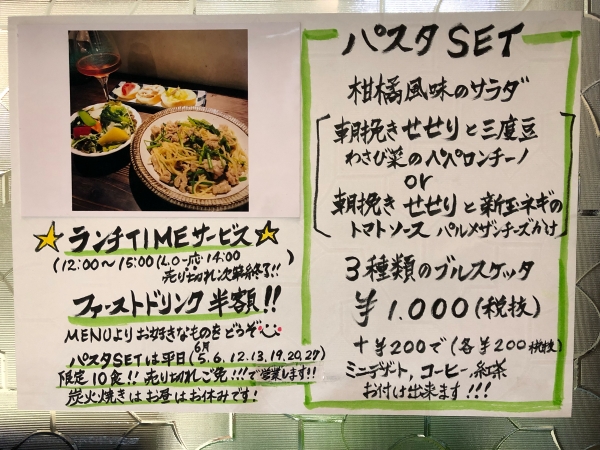 ☆ランチTIMEサービス☆
(12:00〜15:00(L.O一応14:00
売り切れ次第終了!!)
ファーストドリンク 半額!!
MENUよりお好きなものをどうぞ
パスタSETは平日(6月5.6.12.13.19.20.27)
限定10食!! 売り切れご免!!!で営業します!!
炭火焼きはお昼はお休みです!
パスタSET
柑橘風味のサラダ
朝挽きせせりと三度豆
わさび菜のペペロンチーノ
or
朝挽きせせりと新玉ネギの
トマトソース パルメザンチーズかけ
3種類のブルスケッタ
¥1.000(税抜)
+¥200で(各¥200税抜)
ミニデザート,コーヒー,紅茶
お付け出来ます!!!